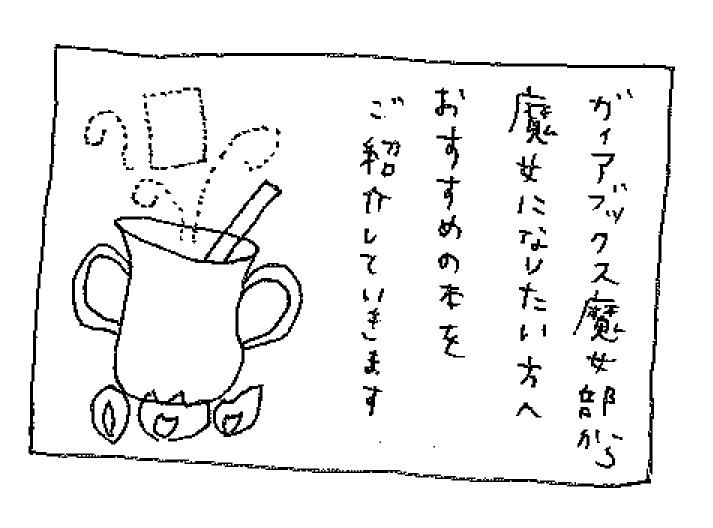 ガイアブックス魔女部から
魔女になりたい方へ
おすすめの本を
ご紹介していきます